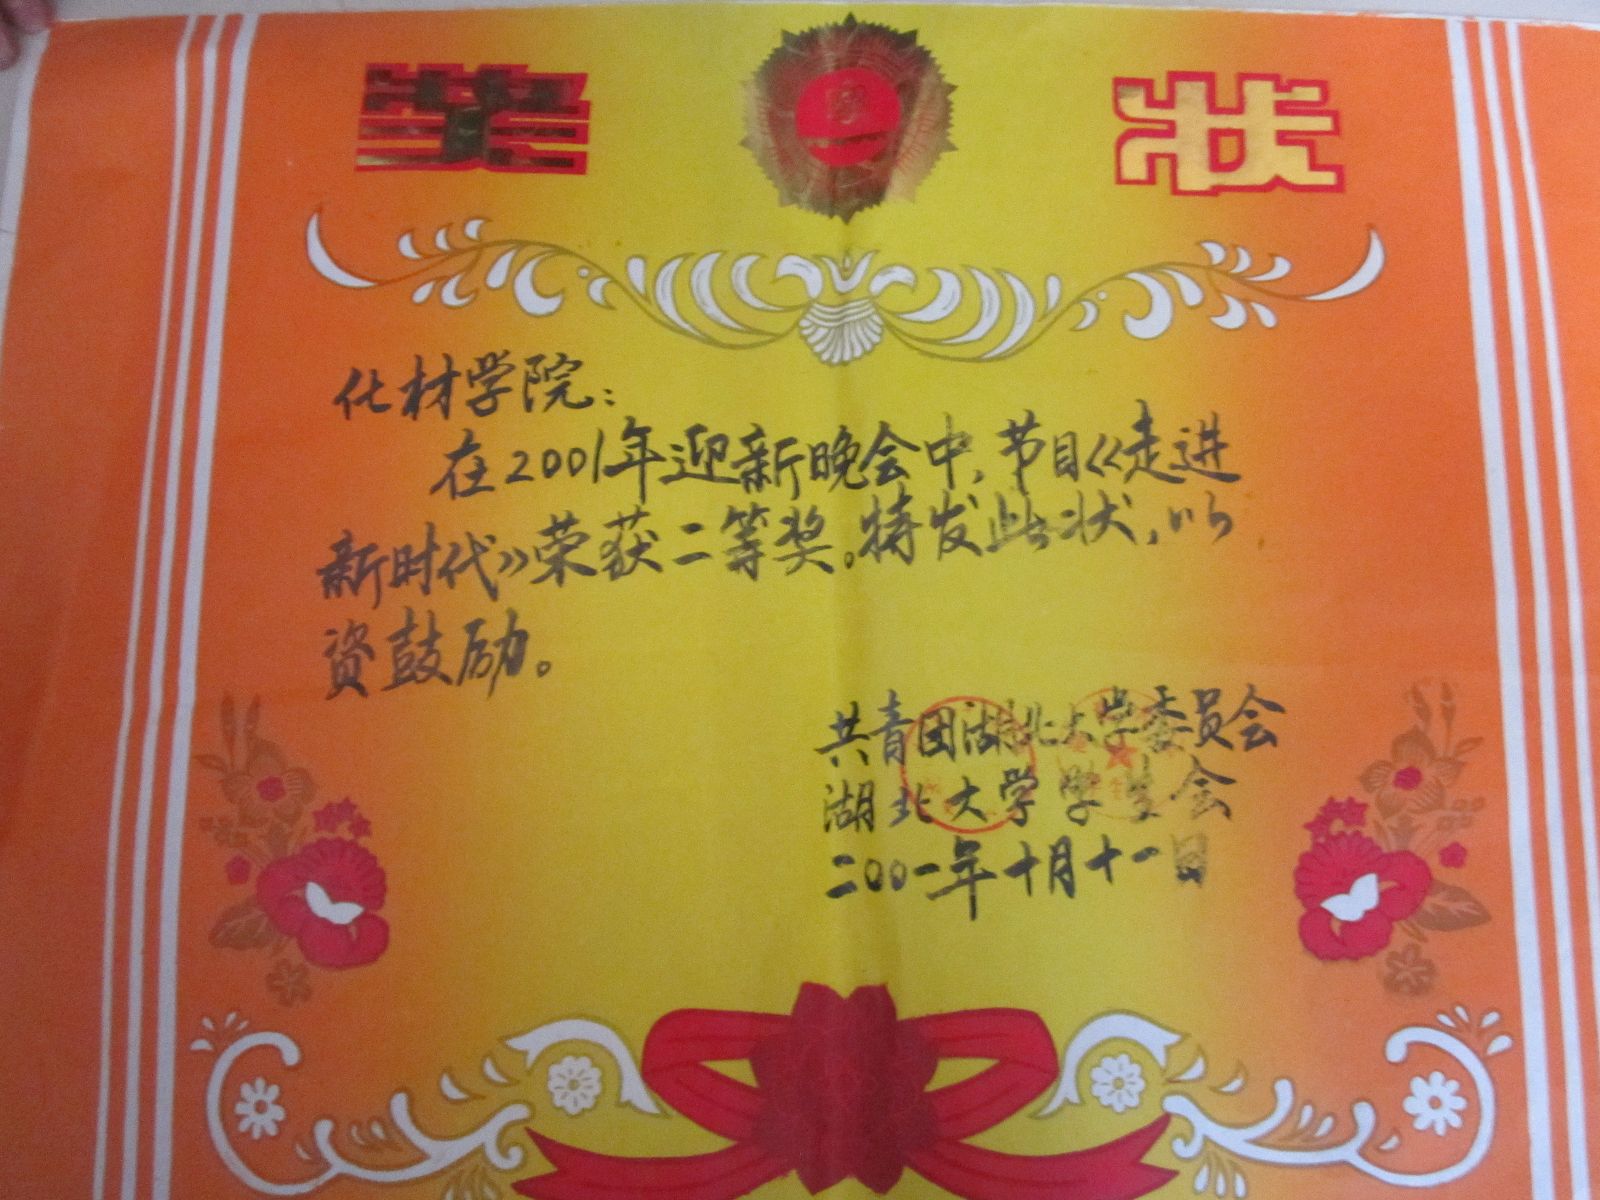 奖状
化材学院：
在2001年迎新晚会中，节目《走进
新时代》荣获二等奖。特发此状，以
资鼓励。
共青团湖北大学委员会
湖北大学学生会
二00一年十月十一日